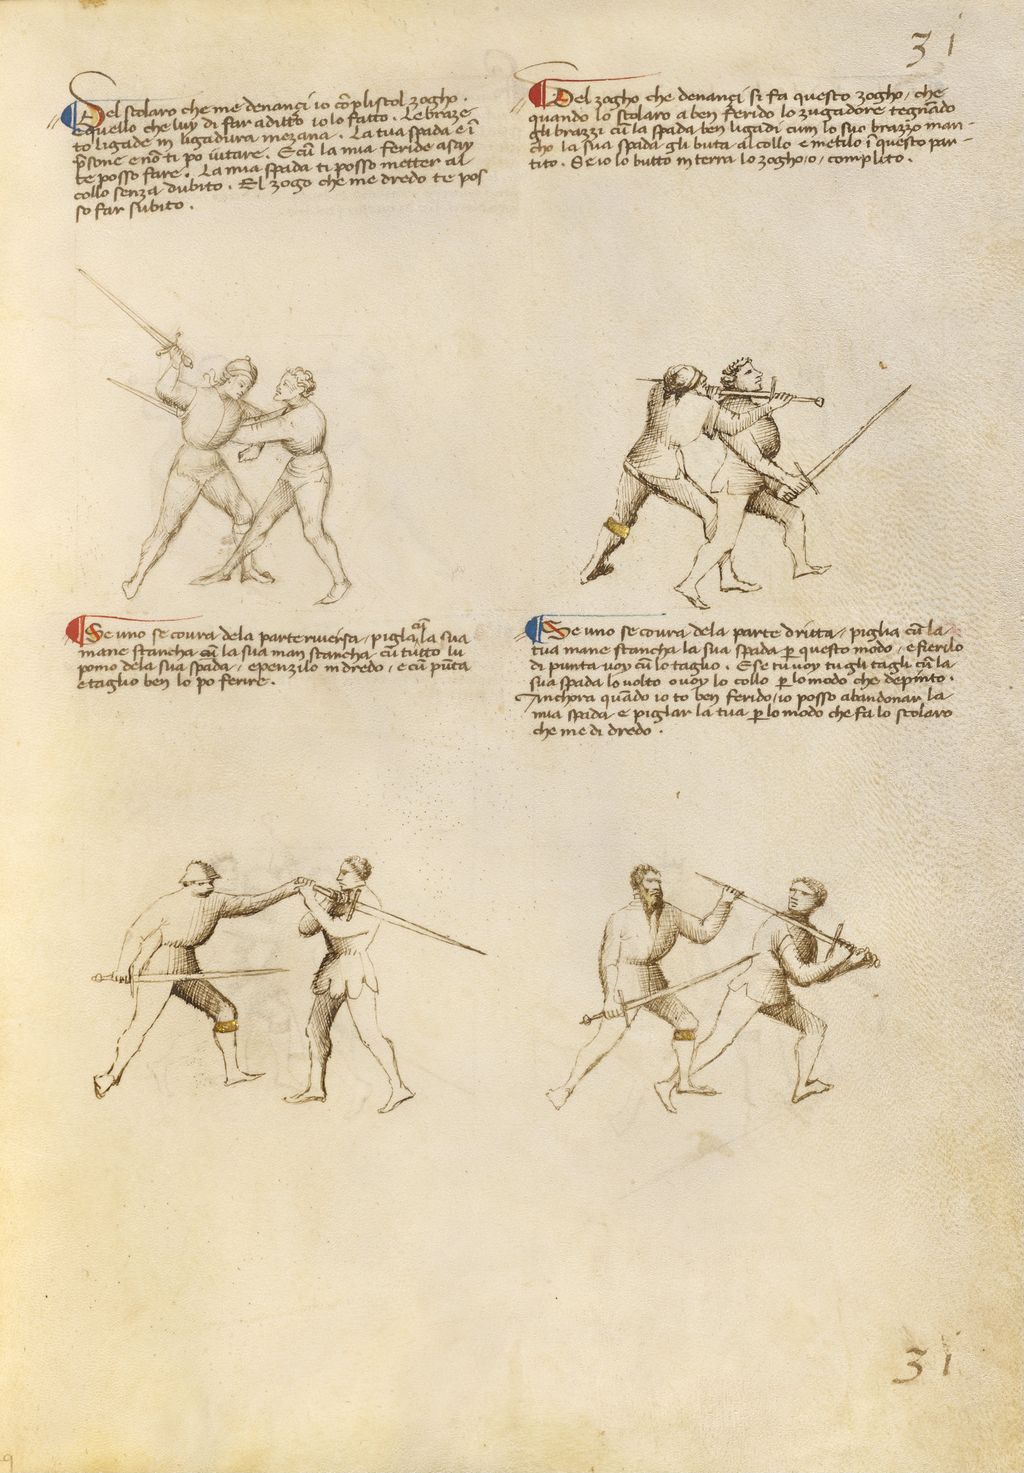 31
Del scolaro che me denançi io cõplisto l zogho.
e quello che luy di far a ditto io lo fatto. Le braze
to ligade in ligadura mezana. La tua spada e ĩ
p̃sone e nõ ti po iutare. E cũ la mia feride asay
te posso fare. La mia spada ti posso metter al
collo senza dubito. El zogo che me dredo te pos
so far subito.
Del zogho che denançi si fa questo zogho, che
quando lo scolaro a ben ferido lo zugadore tegnãdo
gli brazzi cũ la spada ben ligadi cum lo suo brazzo man-
cho la sua spada gli buta al collo e metilo ĩ questo par
tito. Se io lo butto in terra lo zogho, o, complito.
Se uno se covra dela parte riversa, pigla la sua
mane stancha cũ la sua man stancha cũ tutto lu
pomo dela sua spada, e penzilo in dredo, e cũ pũta
e taglio ben lo po ferire.
Se uno se covra dela parte dritta, piglia cũ la
tua mane stancha la sua spada p questo modo, e fierilo
di punta voy cũ lo taglio. E se tu voy tu gli tagli cũ la
sua spada lo volto o voy lo collo p lo modo che depinto.
Anchora quãdo io to ben ferido, io posso abandonar la
mia spada e piglar la tua p lo modo che fa lo scolaro
che me di dredo.
31
9